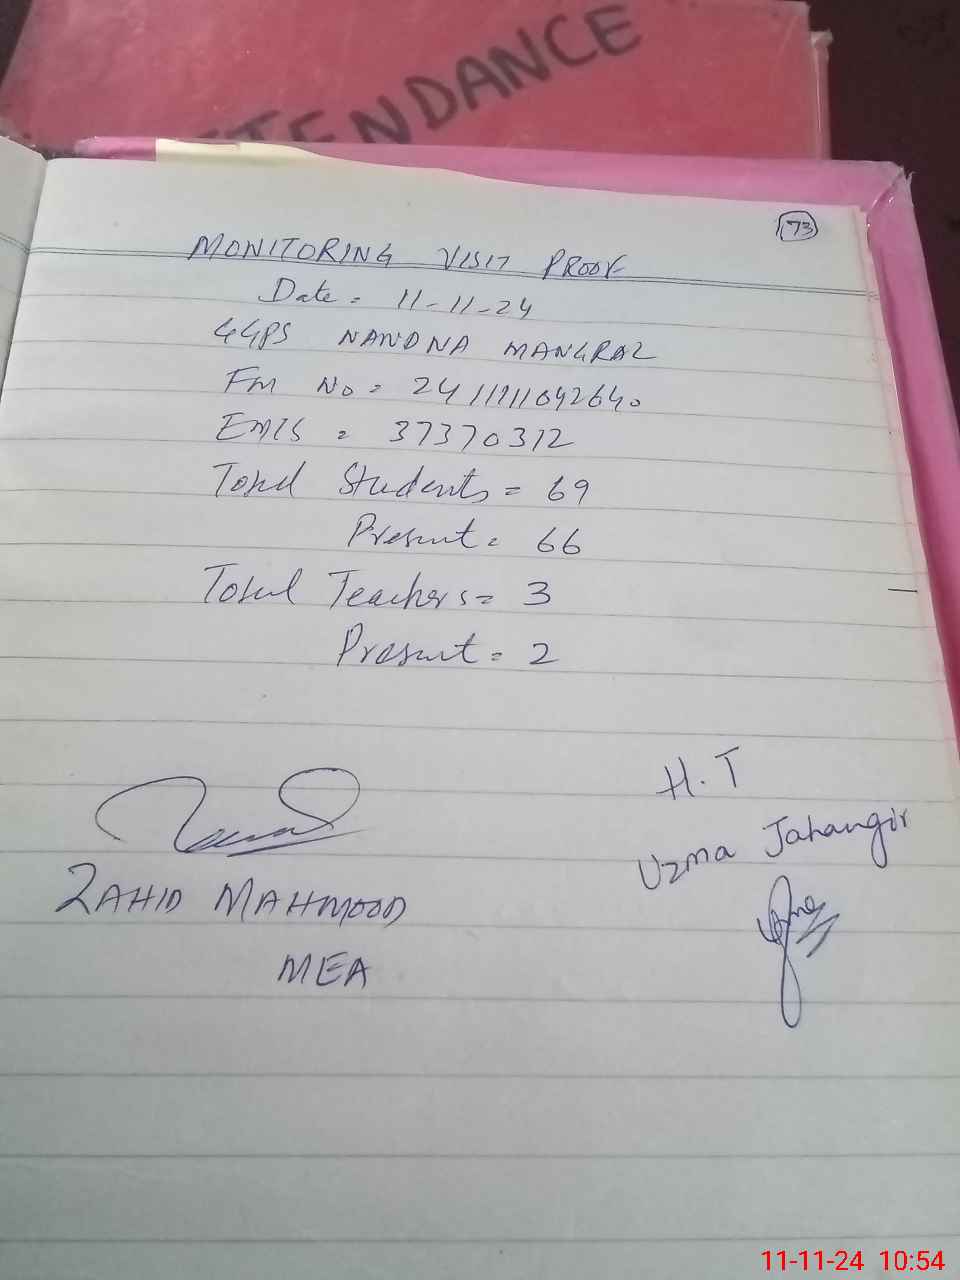 TTENDANCE
73
MONITORING VISIT PROOF
Date = 11-11-24
GGPS NANDNA MANGRAL
Fm No =
EMIS = 37370312
Total Students = 69
Present = 66
Total Teachers = 3
Present = 2
H.T
Uzma Jahangir
ZAHID MAHMOOD
MEA
11-11-24 10:54